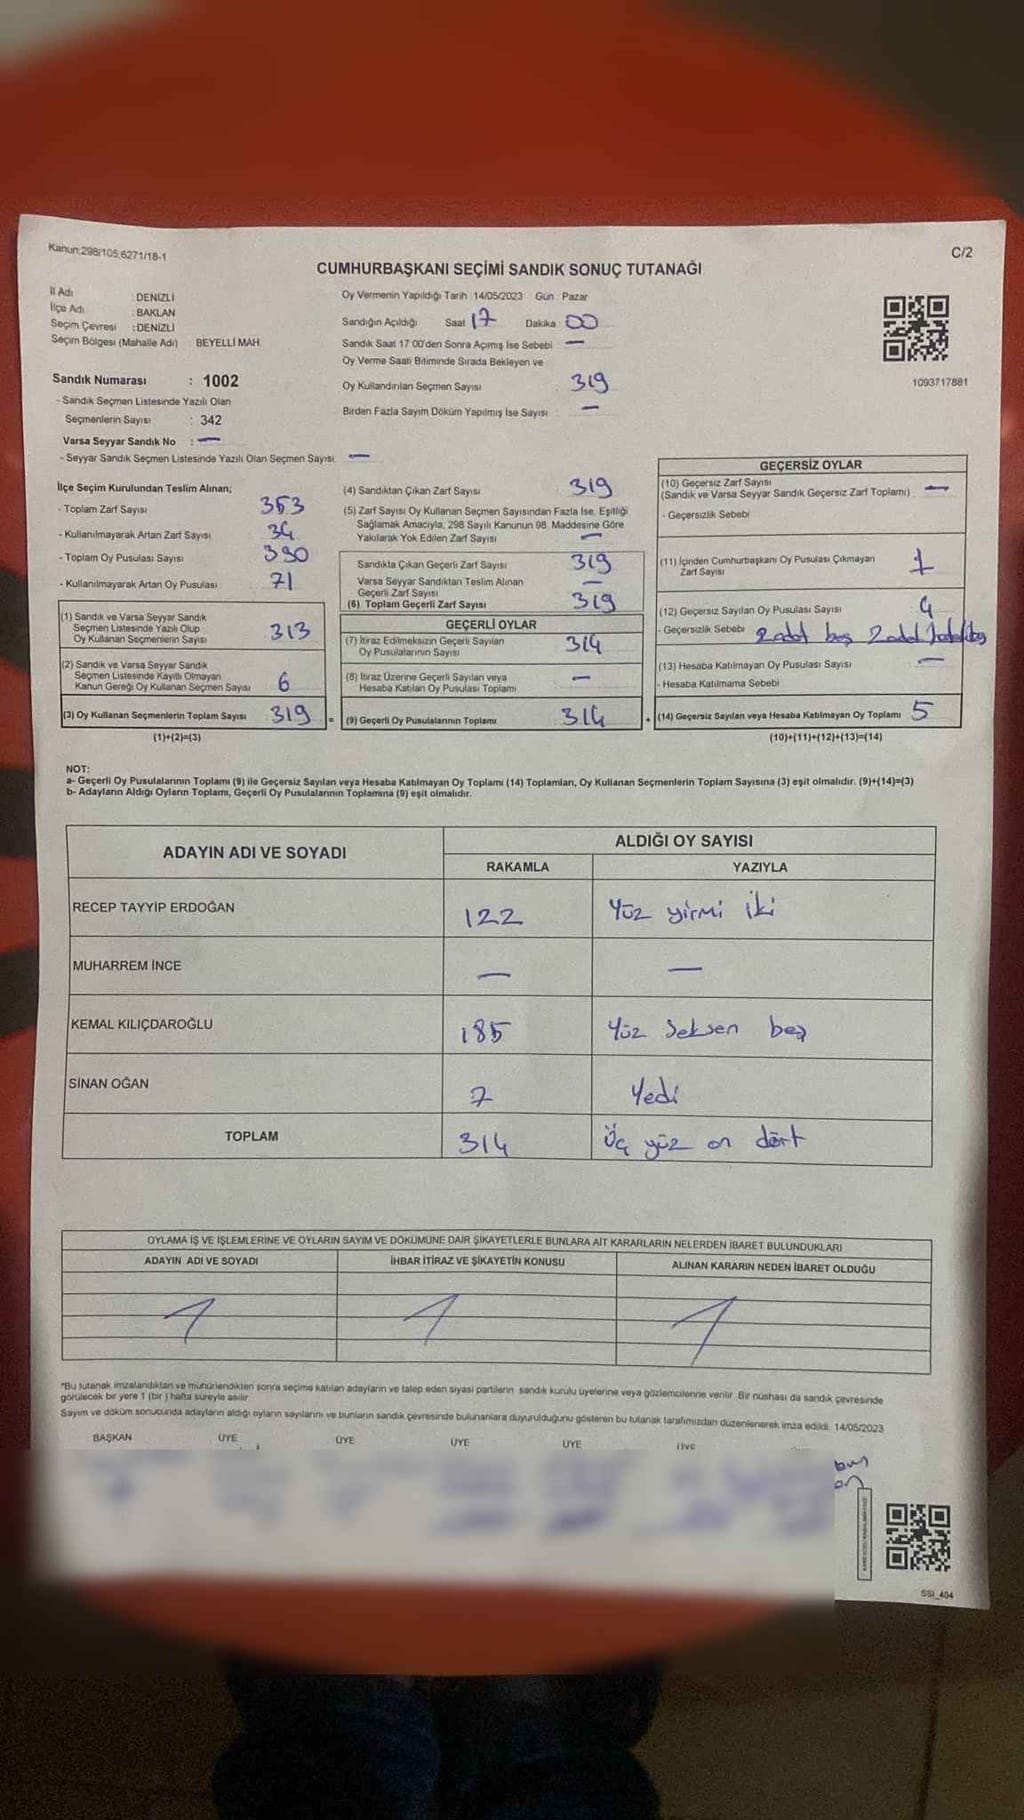 Kanun:298/105;6271/18-1
C/2
CUMHURBAŞKANI SEÇİMİ SANDIK SONUÇ TUTANAĞI
İl Adı : DENİZLİ
İlçe Adı : BAKLAN
Seçim Çevresi : DENİZLİ
Seçim Bölgesi (Mahalle Adı) BEYELLİ MAH.
Sandık Numarası : 1002
- Sandık Seçmen Listesinde Yazılı Olan
Seçmenlerin Sayısı : 342
Varsa Seyyar Sandık No : —
- Seyyar Sandık Seçmen Listesinde Yazılı Olan Seçmen Sayısı: —
Oy Vermenin Yapıldığı Tarih 14/05/2023 Gün : Pazar
Sandığın Açıldığı Saat 17 Dakika : 00
Sandık Saat 17:00'den Sonra Açımış İse Sebebi —
Oy Verme Saati Bitiminde Sırada Bekleyen ve
Oy Kullandırılan Seçmen Sayısı 319
Birden Fazla Sayım Döküm Yapılmış İse Sayısı : —
1093717881
İlçe Seçim Kurulundan Teslim Alınan;
- Toplam Zarf Sayısı 353
- Kullanılmayarak Artan Zarf Sayısı 34
- Toplam Oy Pusulası Sayısı 390
- Kullanılmayarak Artan Oy Pusulası 71
(1) Sandık ve Varsa Seyyar Sandık
Seçmen Listesinde Yazılı Olup
Oy Kullanan Seçmenlerin Sayısı 313
(2) Sandık ve Varsa Seyyar Sandık
Seçmen Listesinde Kayıtlı Olmayan
Kanun Gereği Oy Kullanan Seçmen Sayısı 6
(3) Oy Kullanan Seçmenlerin Toplam Sayısı 319 =
(1)+(2)=(3)
(4) Sandıktan Çıkan Zarf Sayısı 319
(5) Zarf Sayısı Oy Kullanan Seçmen Sayısından Fazla İse, Eşitliği
Sağlamak Amacıyla, 298 Sayılı Kanunun 98. Maddesine Göre
Yakılarak Yok Edilen Zarf Sayısı —
Sandıkta Çıkan Geçerli Zarf Sayısı 319
Varsa Seyyar Sandıktan Teslim Alınan
Geçerli Zarf Sayısı —
(6) Toplam Geçerli Zarf Sayısı 319
GEÇERLİ OYLAR
(7) İtiraz Edilmeksizin Geçerli Sayılan
Oy Pusulalarının Sayısı 314
(8) İtiraz Üzerine Geçerli Sayılan veya
Hesaba Katılan Oy Pusulası Toplamı —
(9) Geçerli Oy Pusulalarının Toplamı 314 +
GEÇERSİZ OYLAR
(10) Geçersiz Zarf Sayısı
(Sandık ve Varsa Seyyar Sandık Geçersiz Zarf Toplamı) —
- Geçersizlik Sebebi
(11) İçinden Cumhurbaşkanı Oy Pusulası Çıkmayan
Zarf Sayısı 1
(12) Geçersiz Sayılan Oy Pusulası Sayısı 4
- Geçersizlik Sebebi 2 adet boş 2 adet
(13) Hesaba Katılmayan Oy Pusulası Sayısı —
- Hesaba Katılmama Sebebi
(14) Geçersiz Sayılan veya Hesaba Katılmayan Oy Toplamı 5
(10)+(11)+(12)+(13)=(14)
NOT:
a- Geçerli Oy Pusulalarının Toplamı (9) ile Geçersiz Sayılan veya Hesaba Katılmayan Oy Toplamı (14) Toplamları, Oy Kullanan Seçmenlerin Toplam Sayısına (3) eşit olmalıdır. (9)+(14)=(3)
b- Adayların Aldığı Oyların Toplamı, Geçerli Oy Pusulalarının Toplamına (9) eşit olmalıdır.
ADAYIN ADI VE SOYADI ALDIĞI OY SAYISI
RAKAMLA YAZIYLA
RECEP TAYYİP ERDOĞAN 122 Yüz yirmi iki
MUHARREM İNCE — —
KEMAL KILIÇDAROĞLU 185 Yüz Seksen beş
SİNAN OĞAN 7 Yedi
TOPLAM 314 Üç yüz on dört
OYLAMA İŞ VE İŞLEMLERİNE VE OYLARIN SAYIM VE DÖKÜMÜNE DAİR ŞİKAYETLERLE BUNLARA AİT KARARLARIN NELERDEN İBARET BULUNDUKLARI
ADAYIN ADI VE SOYADI İHBAR İTİRAZ VE ŞİKAYETİN KONUSU ALINAN KARARIN NEDEN İBARET OLDUĞU
*Bu tutanak imzalandıktan ve mühürlendikten sonra seçime katılan adayların ve talep eden siyasi partilerin sandık kurulu üyelerine veya gözlemcilerine verilir. Bir nüshası da sandık çevresinde
görülecek bir yere 1 (bir ) hafta süreyle asılır.
Sayım ve döküm sonucunda adayların aldığı oyların sayılarını ve bunların sandık çevresinde bulunanlara duyurulduğunu gösteren bu tutanak tarafımızdan düzenlenerek imza edildi. 14/05/2023
BAŞKAN ÜYE ÜYE ÜYE ÜYE ÜYE
SSI_404